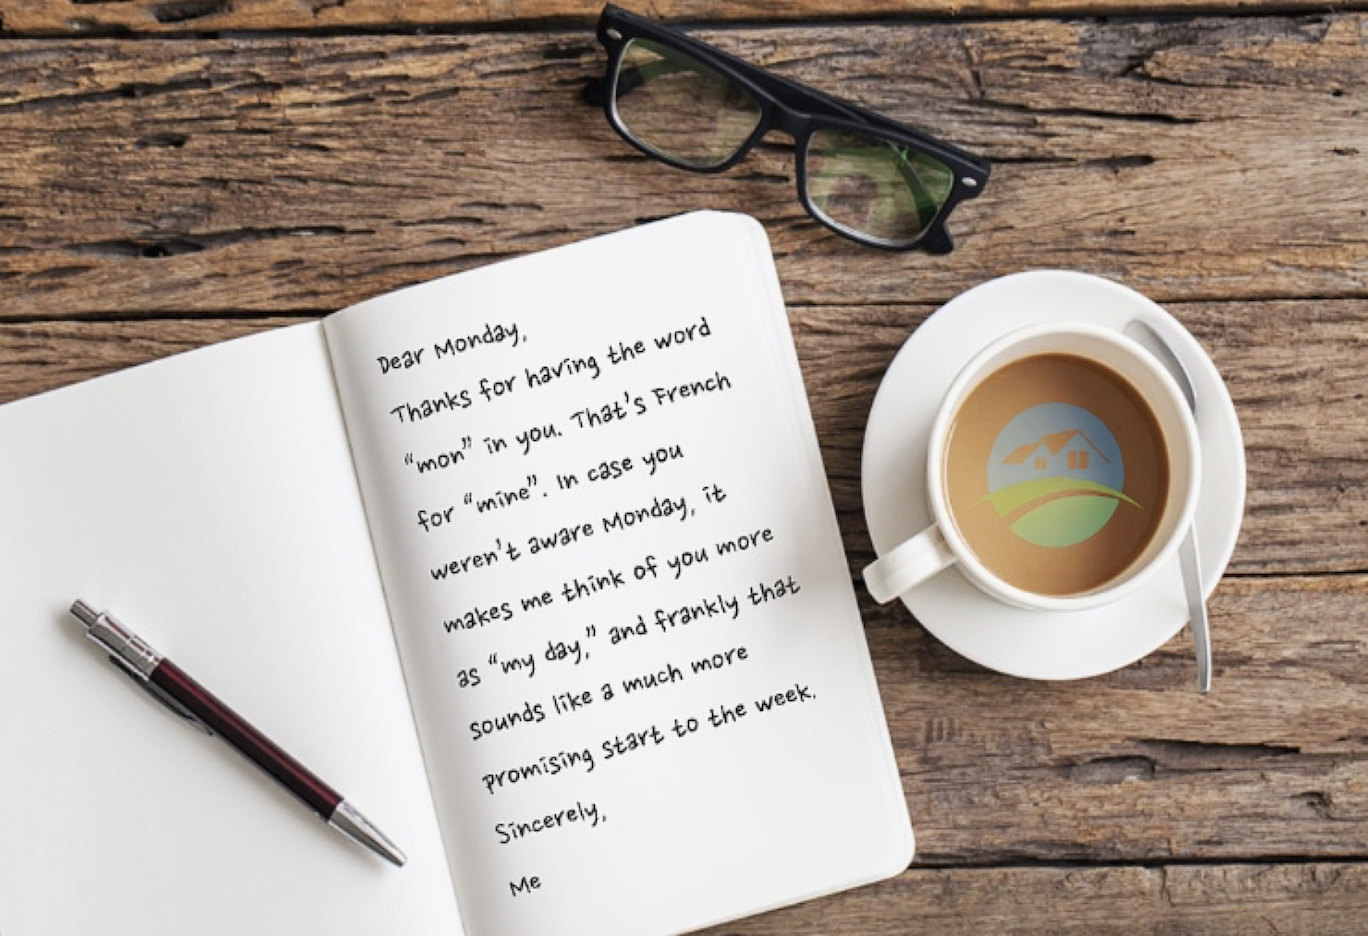 Dear Monday,
Thanks for having the word
“mon” in you. That's French
for “mine”. In case you
weren't aware Monday, it
makes me think of you more
as “my day,” and frankly that
sounds like a much more
promising start to the week.
Sincerely,
Me